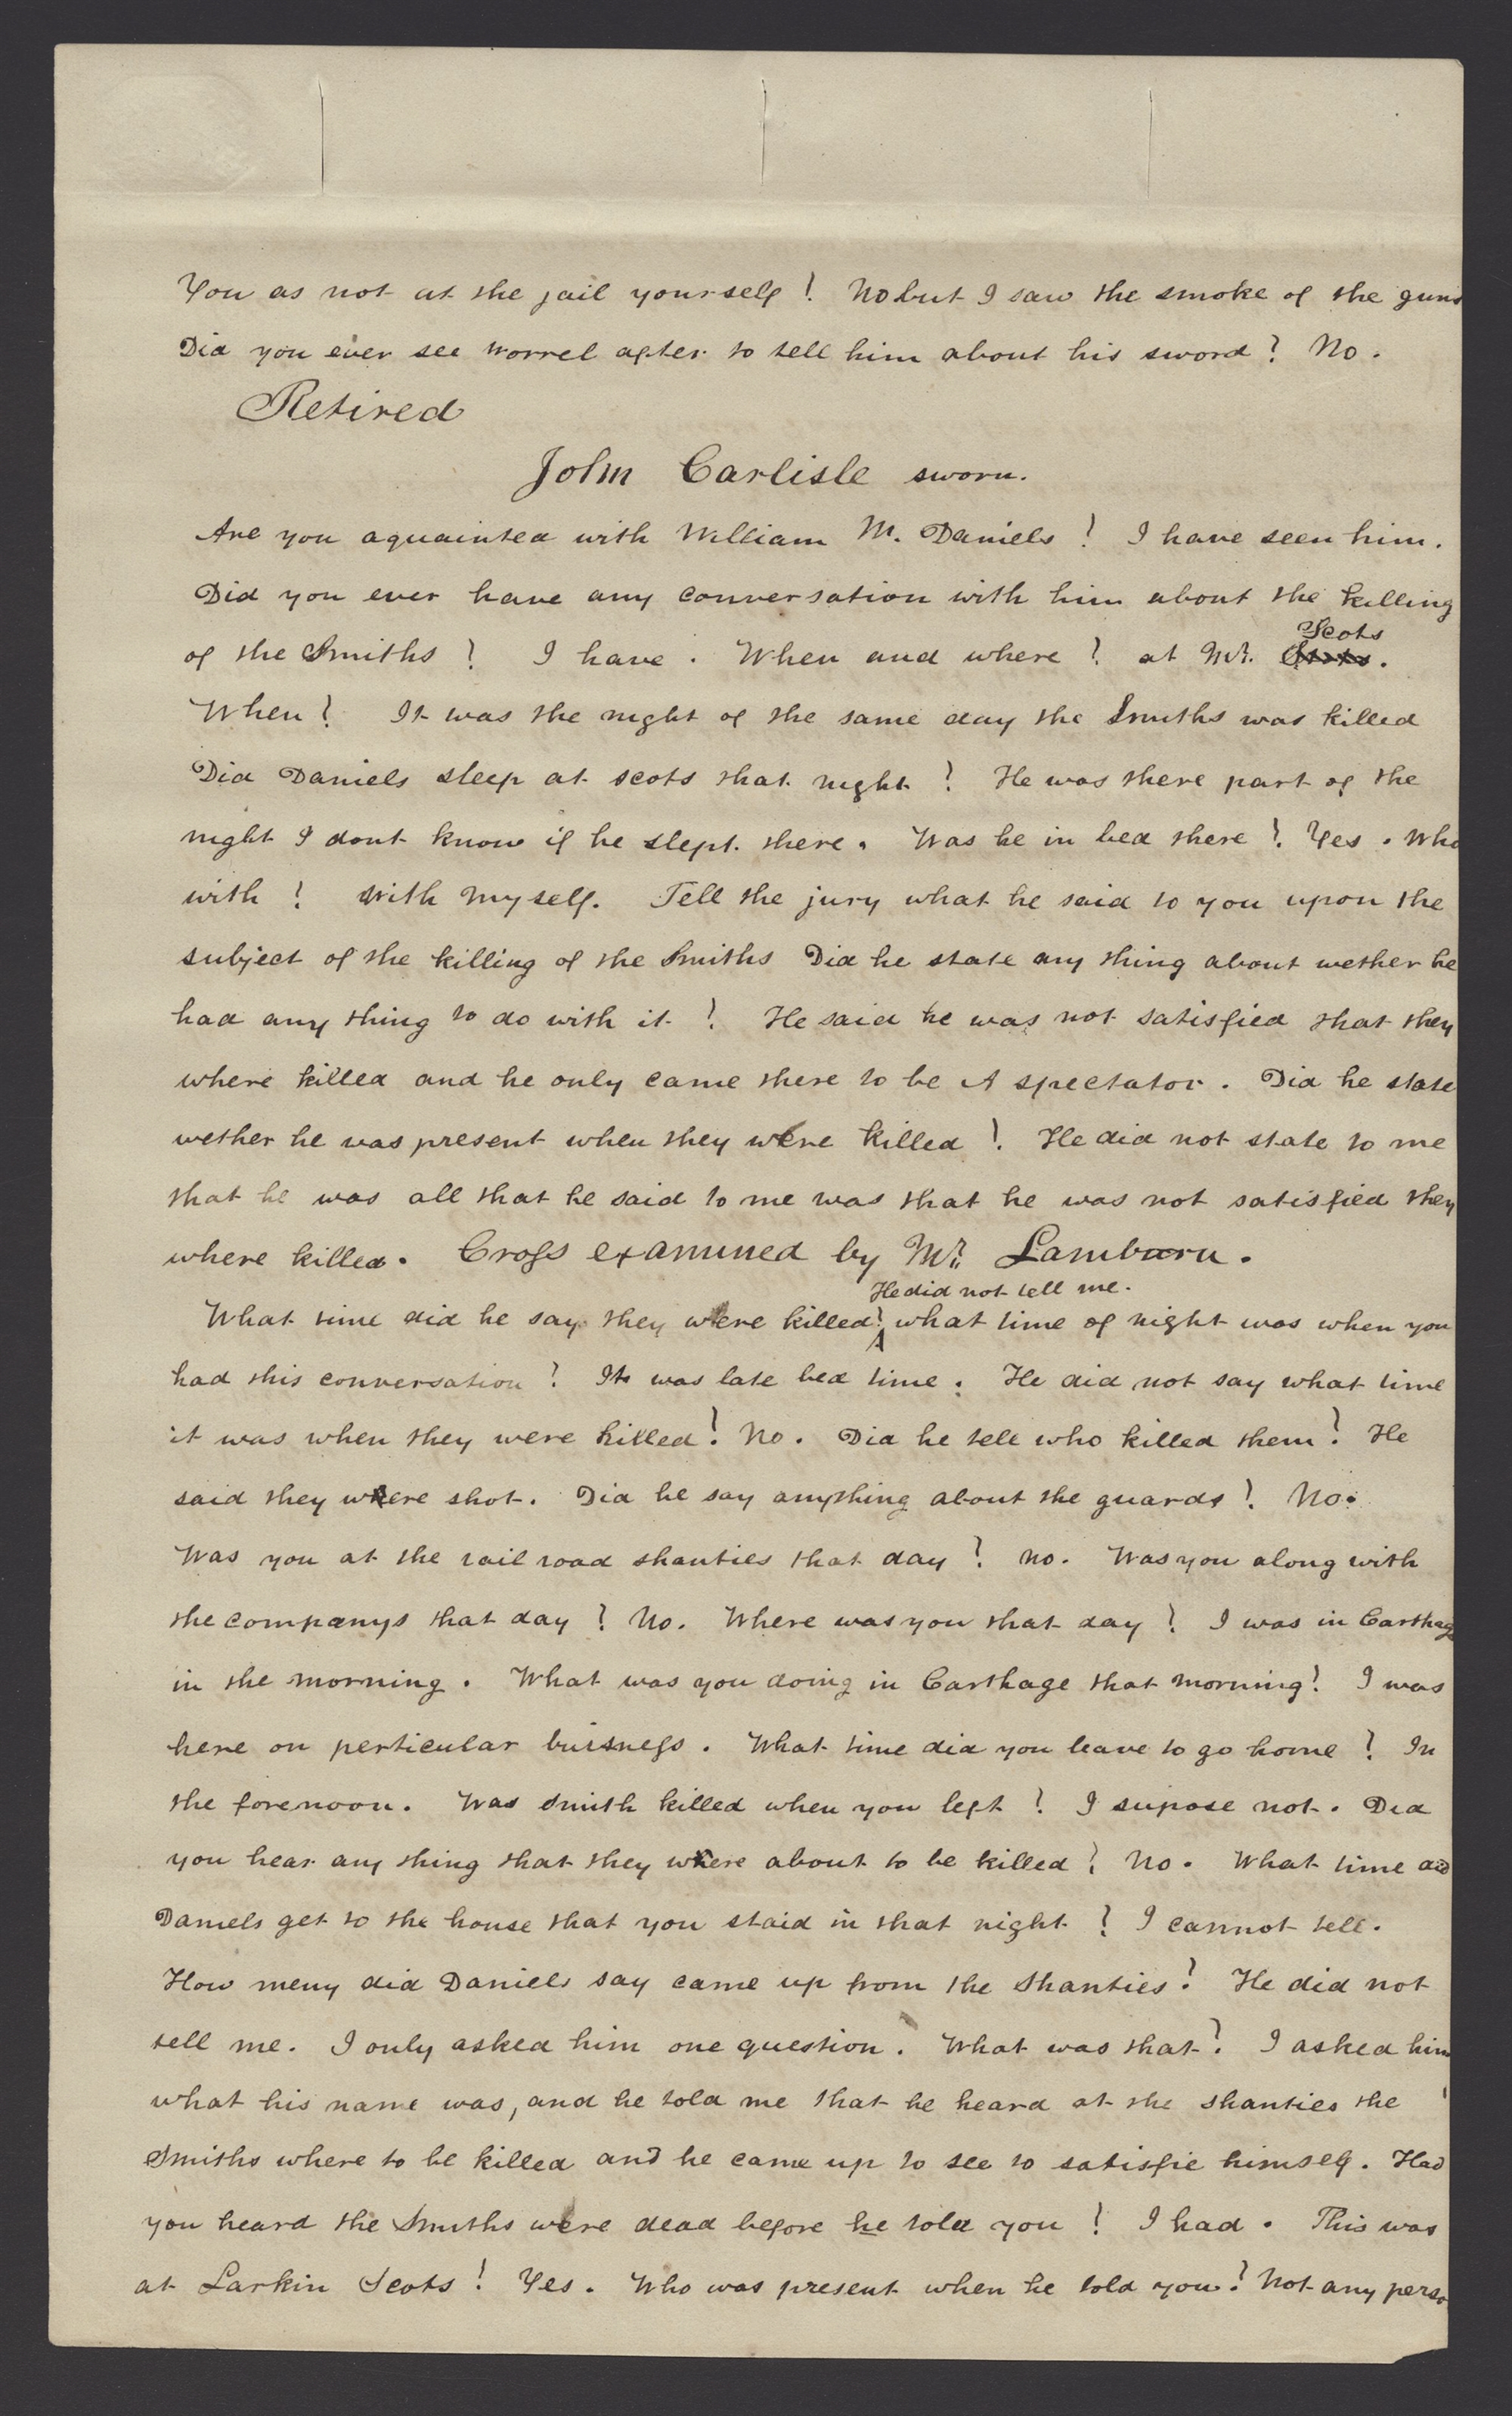 You as not at the jail yourself? No but I saw the smoke of the guns
Did you ever see Worrel after to tell him about his sword? No.
Retired
John Carlisle sworn.
Are you aquainted with William M. Daniels? I have seen him.
Did you ever have any conversation with him about the killing
Scots
of the Smiths? I have. When and where? at Mr.
When? It was the night of the same day the Smiths was killed
Did Daniels sleep at scots that night? He was there part of the
night I dont know if he slept there. Was he in bed there? Yes. Who
with? With myself. Tell the jury what he said to you upon the
subject of the killing of the Smiths Did he state any thing about wether he
had any thing to do with it? He said he was not satisfied that they
where killed and he only came there to be A spectator. Did he state
wether he was present when they were killed? He did not state to me
that he was all that he said to me was that he was not satisfied they
where killed. Cross examined by Mr. Lamburn.
He did not tell me.
What time did he say they were killed? what time of night was when you
had this conversation? It was late bed time. He did not say what time
it was when they were killed? No. Did he tell who killed them? He
said they where shot. Did he say anything about the guards? No.
Was you at the rail road shanties that day? no. Was you along with
the companys that day? No. Where was you that day? I was in Carthage
in the morning. What was you doing in Carthage that morning? I was
here on perticular buisness. What time did you leave to go home? In
the forenoon. Was smith killed when you left? I supose not. Did
you hear any thing that they where about to be killed? No. What time did
Daniels get to the house that you staid in that night? I cannot tell.
How meny did Daniels say came up from the Shanties? He did not
tell me. I only asked him one question. What was that? I asked him
what his name was, and he told me that he heard at the shanties the
Smiths where to be killed and he came up to see to satisfie himself. Had
you heard the Smiths were dead before he told you? I had. This was
at Larkin Scots? Yes. Who was present when he told you? Not any perso